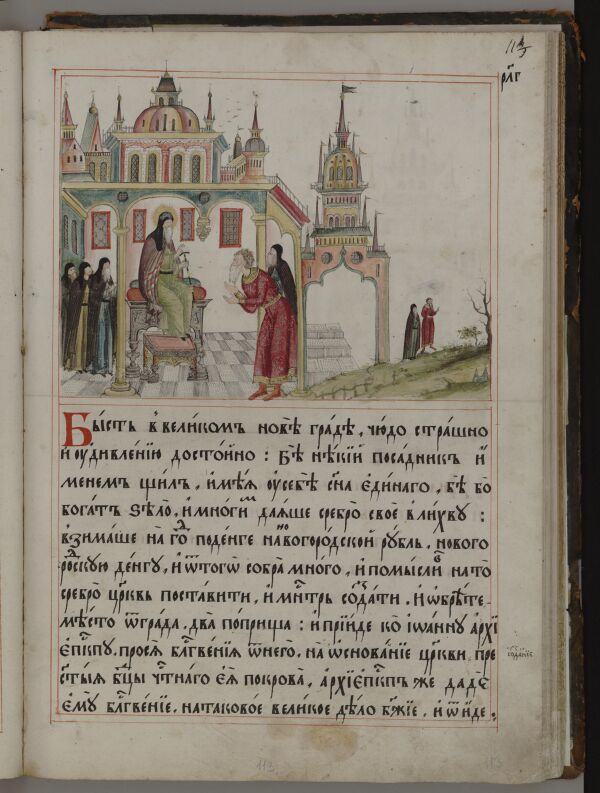 113
рг҃і
Бы́сть в̾ вели́комъ нове́ гра́дѣ, чю́до стра́шно
и҆ ᲂу҆дивле́нїю досто́йно : Бѣ̀ нѣ́кїй поса́дникъ и҆
менемъ щи́лъ, и҆мѣ́ѧ ᲂу҆себѐ сн҃а є҆ди́наго, бѣ̀ бо
бога́тъ ѕѣло̀, и҆ мно́ги даѧ́ше сребро̀ своѐ в̾ли́хву :
взима́ше на́ годъ поде́нге нановогоро́дской рꙋ́бль, но́вого
ро́дскую де́нгꙋ, и҆ ѿтогѡ̀ собра̀ мно́го, и҆ помы́сли нато̀
сребро̀ цр҃квь поста́вити, и҆ мн҃трь созда́ти, и҆ ѡ҆брѣ́те
мѣ́сто ѿгра́да, два̀ по́прища : и҆ прїи́де ко і҆ѡа́ннꙋ а҆рхї
є҆пⷭ҇кпꙋ, просѧ̀ блгⷭ҇ве́нїѧ ѿнегѡ̀, на ѡ҆снова́нїе цр҃кви, пре
ст҃ы́ѧ бц҃ы чтⷭ҇наго є҆ѧ̀ покро́ва, а҆рхїє҆пⷭ҇кпъ же дадѐ
є҆мꙋ̀ блгⷭ҇ве́нїе, натаково́е вели́кое дѣ́ло бж҃їе, и҆ ѿи́де,
созда́нїе
113